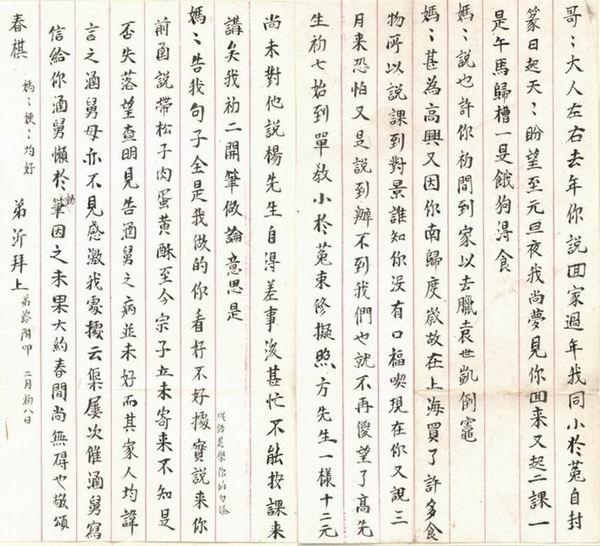 哥〻大人左右去年你說回家過年我同小於菟自封
篆日起天〻盼望至元旦夜我尚夢見你回来又起二課一
是午馬歸槽一是餓狗得食
媽〻說也許你初間到家以去臘袁世凱倒竈
媽〻甚為高興又因你南歸度歲故在上海買了許多食
物所以說課到對景誰知你沒有口福喫現在你又說三
月来恐怕又是說到辦不到我們也就不再儍望了高先
生初七始到單教小於菟束脩擬照方先生一樣十二元
尚未對他說楊先生自得差事後甚忙不能按課来
講矣我初二開筆做論意思是
媽〻告我句子全是我做的你看好不好據實說来你
從話是學你的勿怪
前函說帶松子肉蛋黃酥至今宗子立未寄来不知是
否失落望查明見告涵舅之病並未好而其家人均諱
言之涵舅母亦不見感激我處據云渠屢次催涵舅寫
信給你涵舅懶於動筆因之未果大約春間尚無碍也敬頌
春棋
媽〻梗〻均好
弟沂拜上
二月初八日